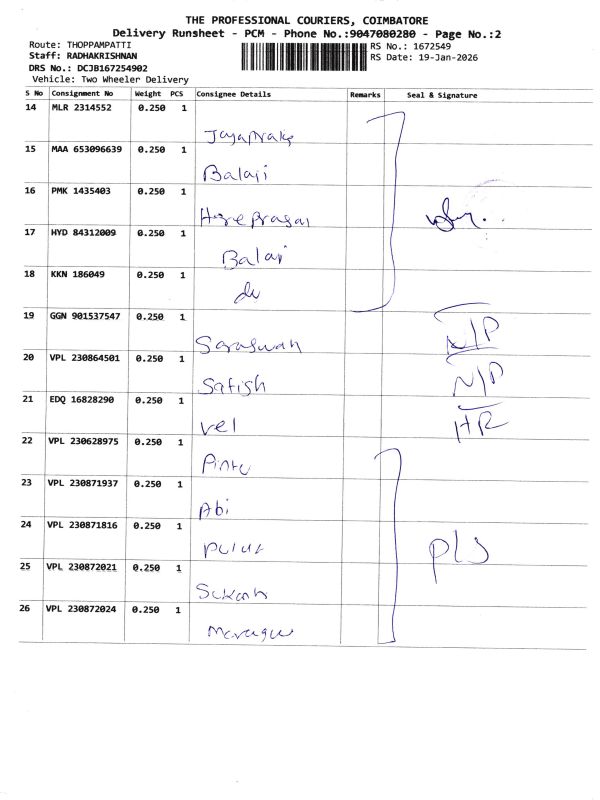 THE PROFESSIONAL COURIERS, COIMBATORE
Delivery Runsheet - PCM - Phone No.:9047080280 - Page No.:2
Route: THOPPAMPATTI
RS No.: 1672549
Staff: RADHAKRISHNAN
RS Date: 19-Jan-2026
DRS No.: DCJB167254902
Vehicle: Two Wheeler Delivery
S No Consignment No Weight PCS Consignee Details Remarks Seal & Signature
14 MLR 2314552 0.250 1
15 MAA 653096639 0.250 1
Balaji
16 PMK 1435403 0.250 1
17 HYD 84312009 0.250 1
18 KKN 186049 0.250 1
19 GGN 901537547 0.250 1
N/P
20 VPL 230864501 0.250 1
Satish N/P
21 EDQ 16828290 0.250 1
vel
22 VPL 230628975 0.250 1
Pintu
23 VPL 230871937 0.250 1
Abi
24 VPL 230871816 0.250 1
25 VPL 230872021 0.250 1
26 VPL 230872024 0.250 1